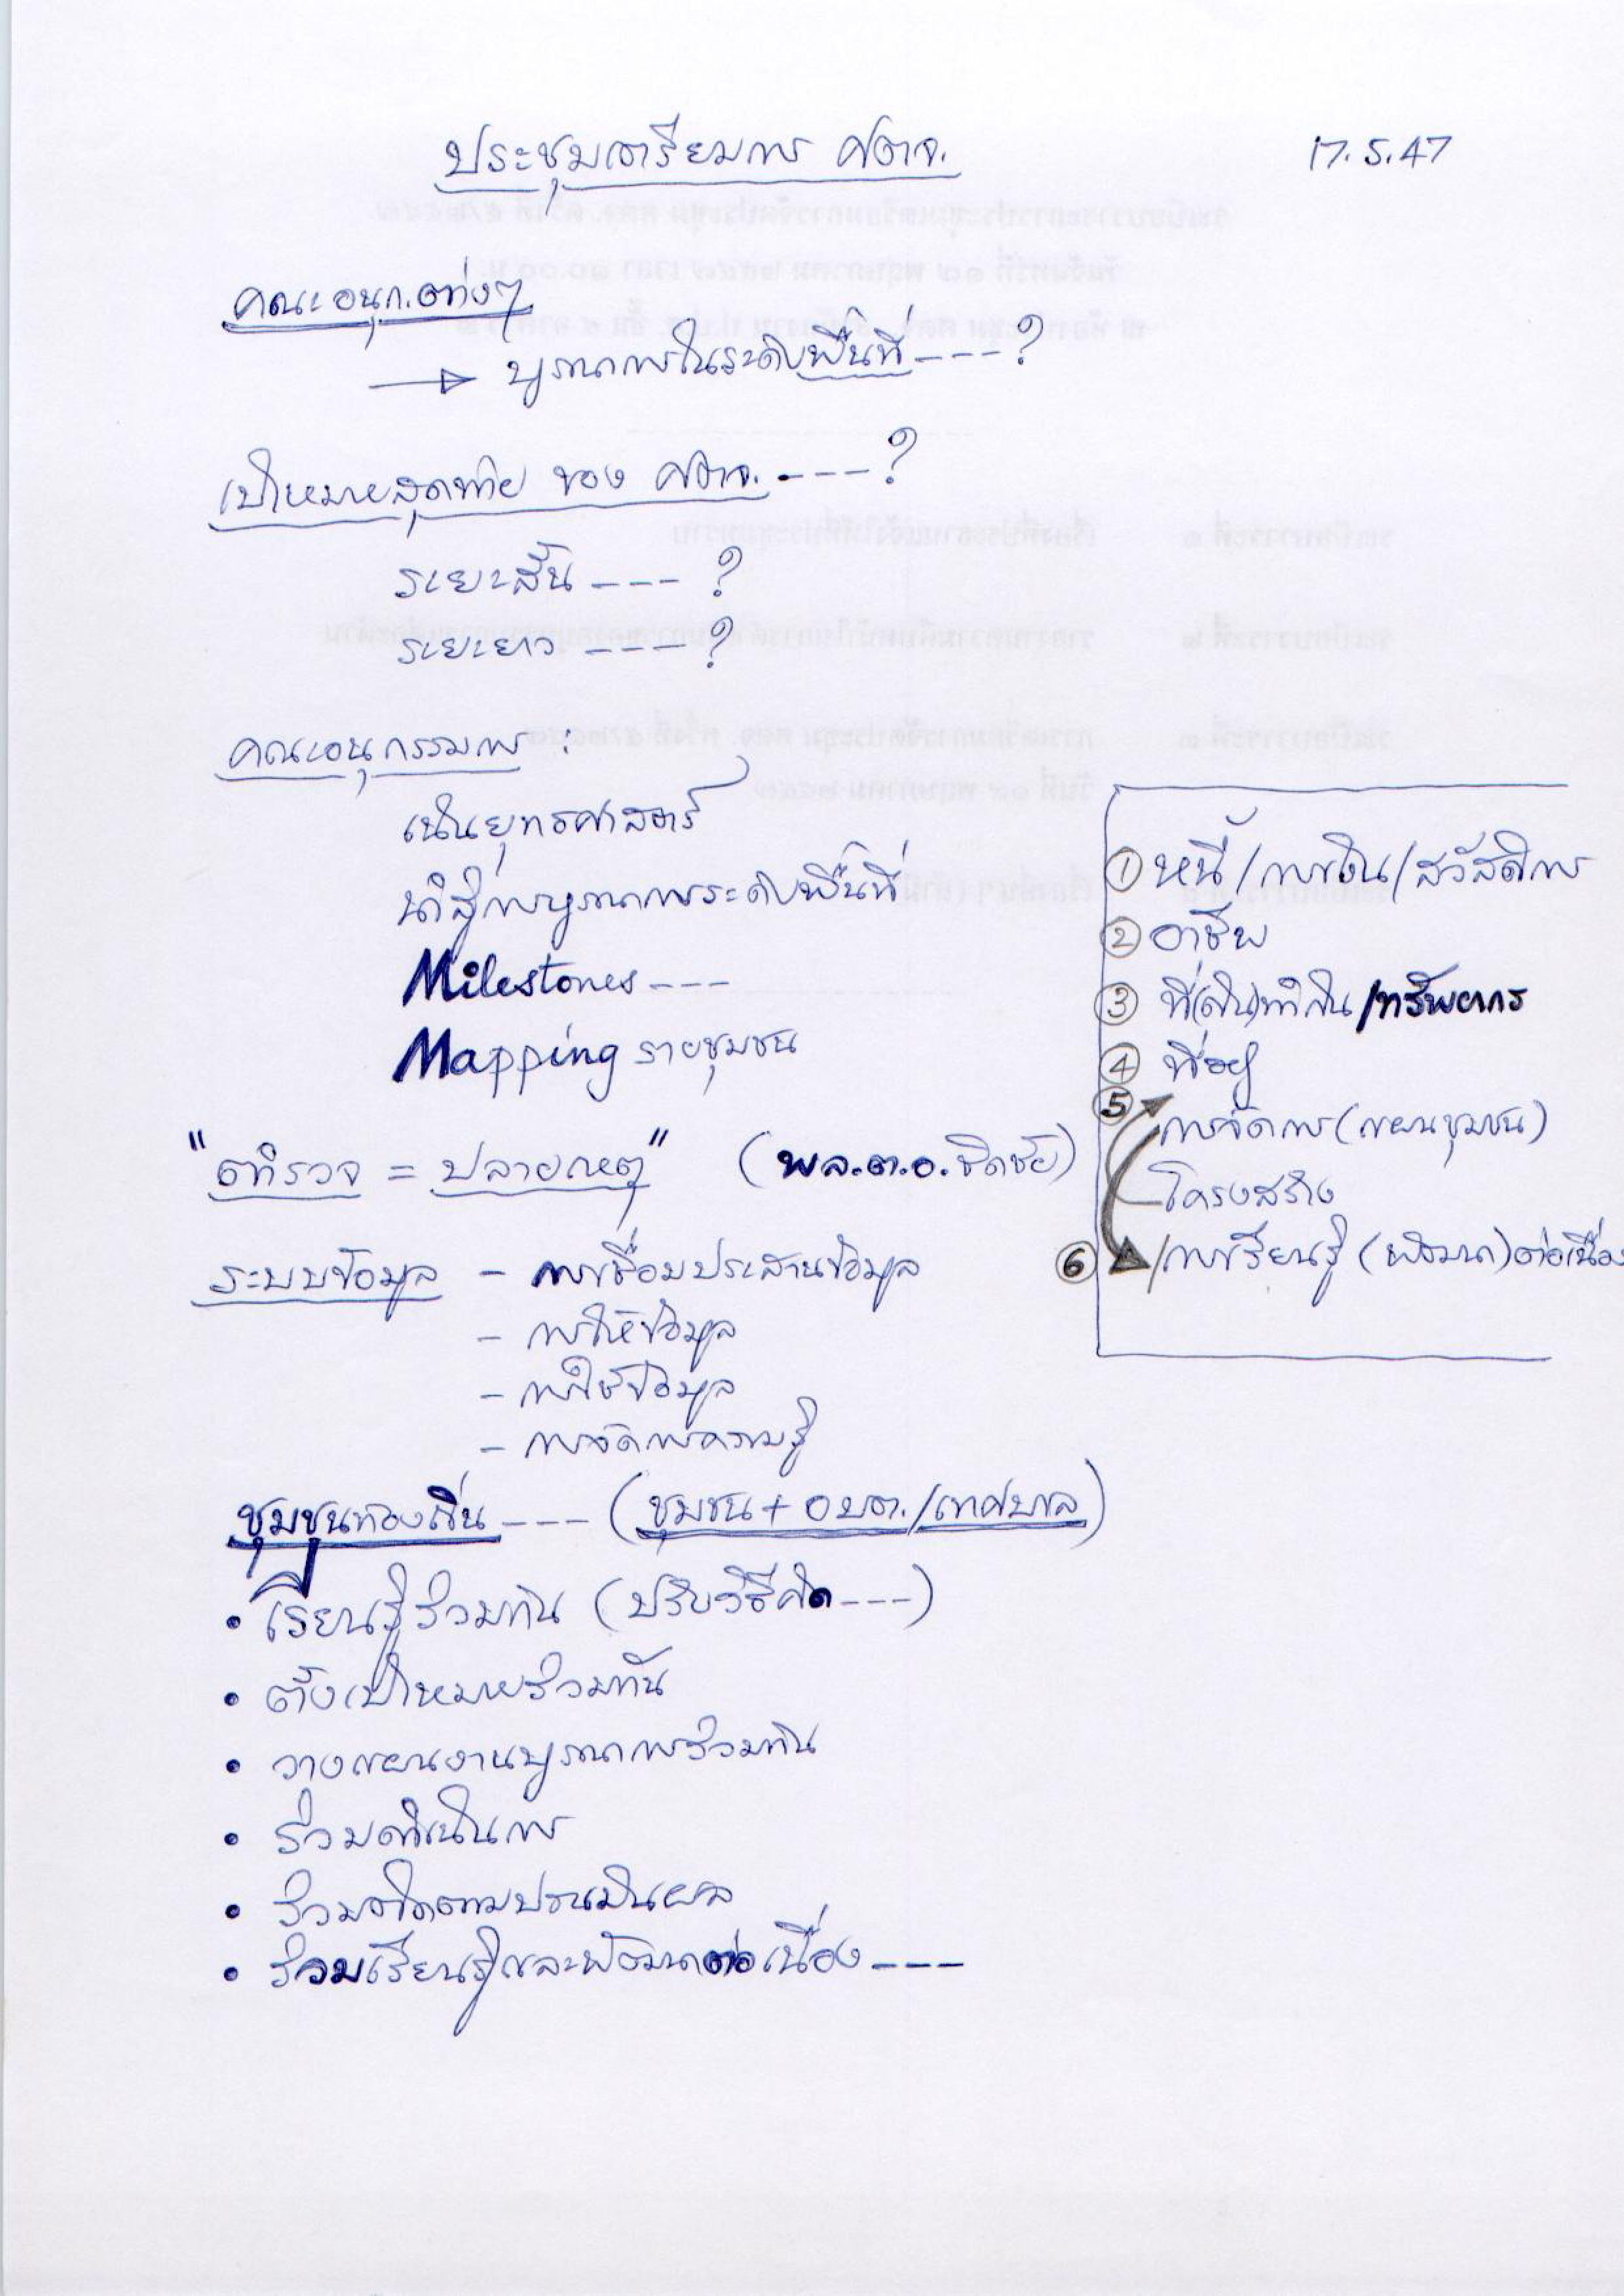 ประชุมเตรียมการ ศตจ.
17.5.47
คณะอนุก.ต่างๆ
→ บูรณาการในระดับพื้นที่ ---- ?
เป้าหมายสุดท้าย ของ ศตจ. ---- ?
ระยะสั้น --- ?
ระยะยาว ---- ?
คณะอนุกรรมการ :
เน้นยุทธศาสตร์
นำสู่การบูรณาการระดับพื้นที่
Milestones ---
Mapping รายชุมชน
"ตำรวจ = ปลายเหตุ" (พล.ต.อ.ชิดชัย)
ระบบข้อมูล - การเชื่อมประสานข้อมูล
- การให้ข้อมูล
- การใช้ข้อมูล
- การจัดการความรู้
① หนี้/การเงิน/สวัสดิการ
② อาชีพ
③ ที่(ดิน)ทำกิน/ทรัพยากร
④ ที่อยู่
⑤ การจัดการ(แผนชุมชน)
โครงสร้าง
⑥ /การเรียนรู้ (พัฒนา)ต่อเนื่อง
ชุมชนท้องถิ่น ---- (ชุมชน + อบต./เทศบาล)
• เรียนรู้ร่วมกัน (ปรับวิธีคิด ---)
• ตั้งเป้าหมายร่วมกัน
• วางแผนงานบูรณาการร่วมกัน
• ร่วมดำเนินการ
• ร่วมติดตามประเมินผล
• ร่วมเรียนรู้และพัฒนาต่อเนื่อง ---